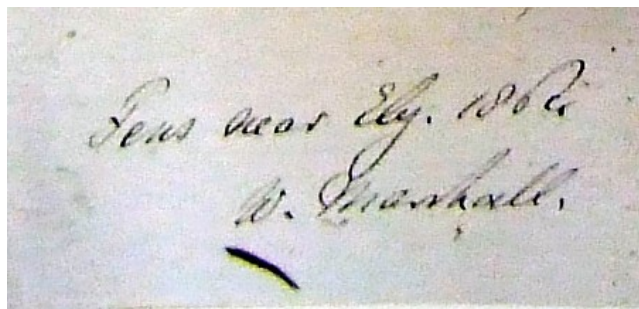 Fens near Ely. 1862.
W. Marshall.